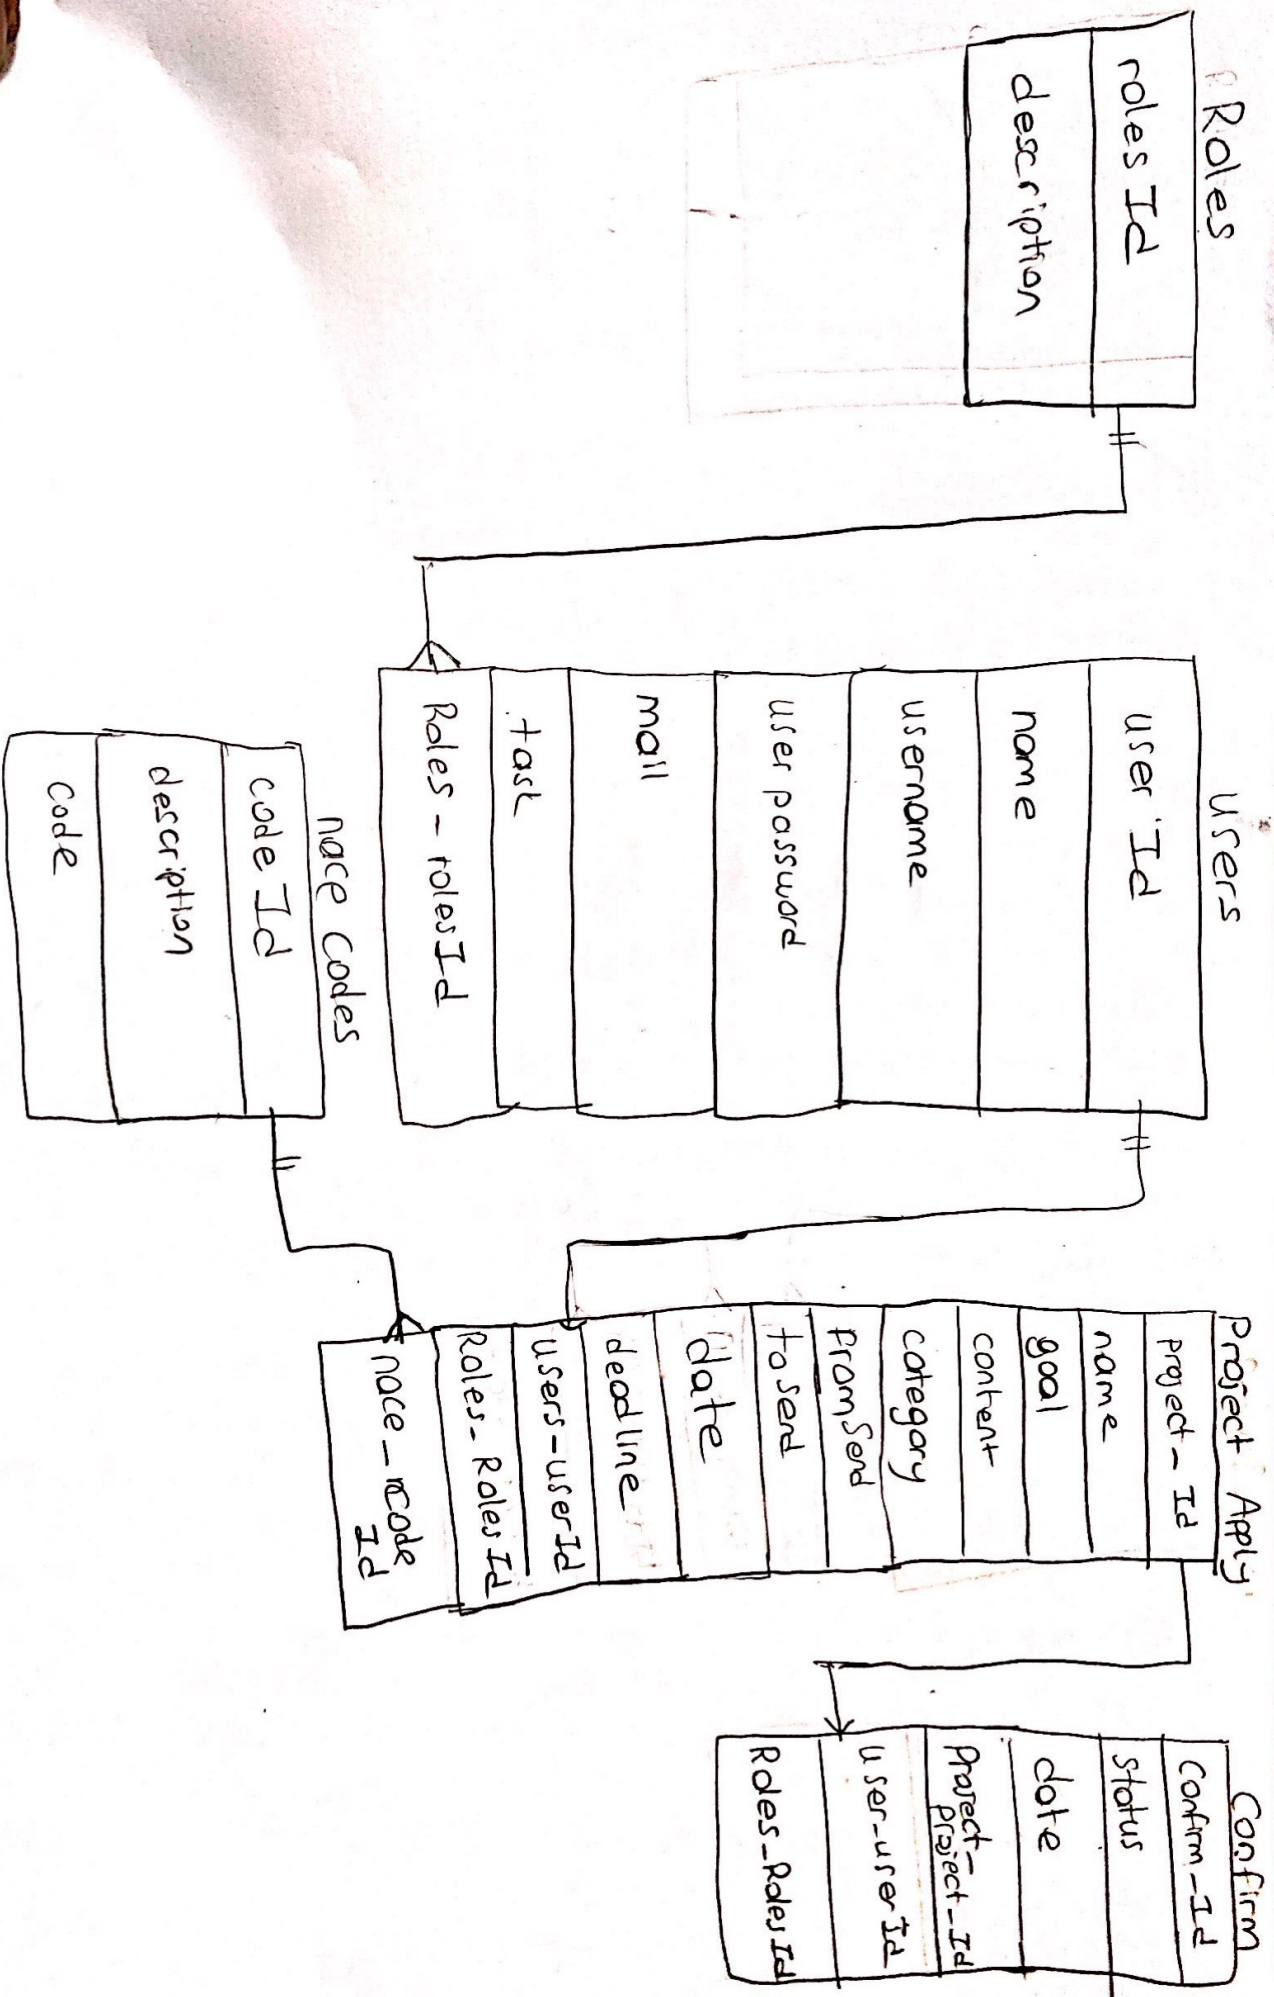 Roles
roles Id
description
users
user Id
name
username
user password
mail
task
Roles - roles Id
nace codes
code Id
description
code
Project Apply
project_Id
name
goal
content
category
from Send
to send
date
deadline
users-user Id
Roles_Roles Id
nace_code
Id
Confirm
Confirm_Id
status
date
Project_
project_Id
user_user Id
Roles_Roles Id